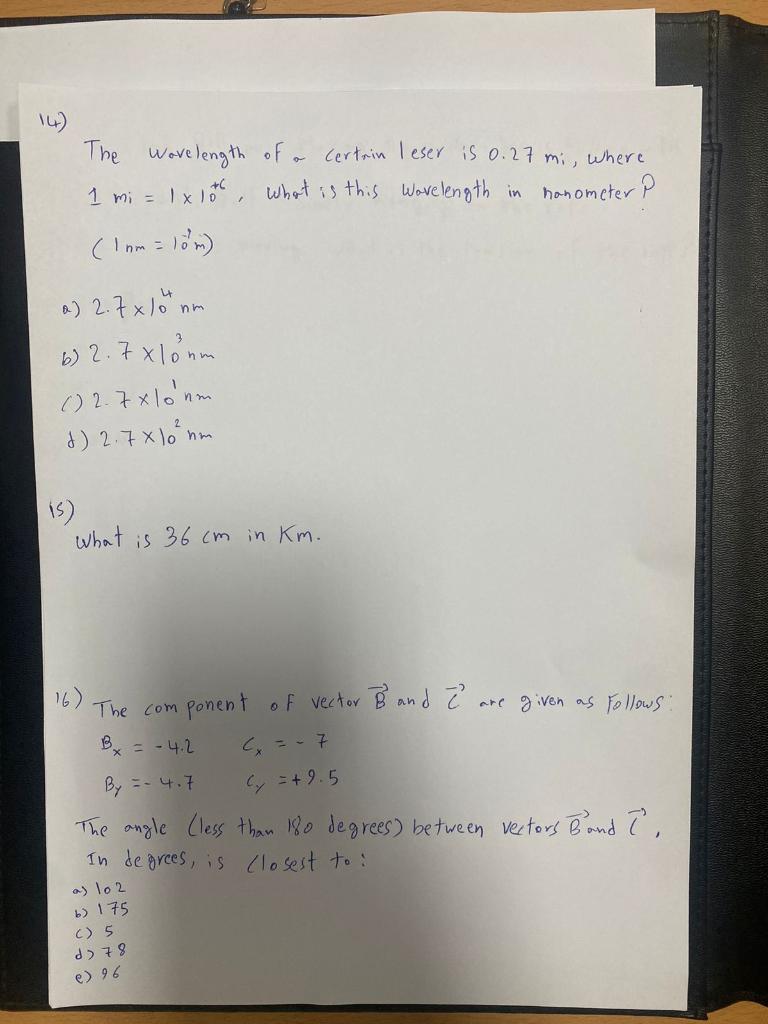 14)
The wavelength of a certain leser is 0.27 mi, where
1 mi = 1 x 10^+6, what is this wavelength in nanometer?
(1 nm = 10^-9 m)
a) 2.7 x 10^4 nm
b) 2.7 x 10^3 nm
c) 2.7 x 10^1 nm
d) 2.7 x 10^2 nm
15)
what is 36 cm in Km.
16) The component of vector B⃗ and C⃗ are given as follows:
Bx = - 4.2 Cx = - 7
By = - 4.7 Cy = + 9.5
The angle (less than 180 degrees) between vectors B⃗ and C⃗,
In degrees, is closest to:
a) 102
b) 175
c) 5
d) 78
e) 96